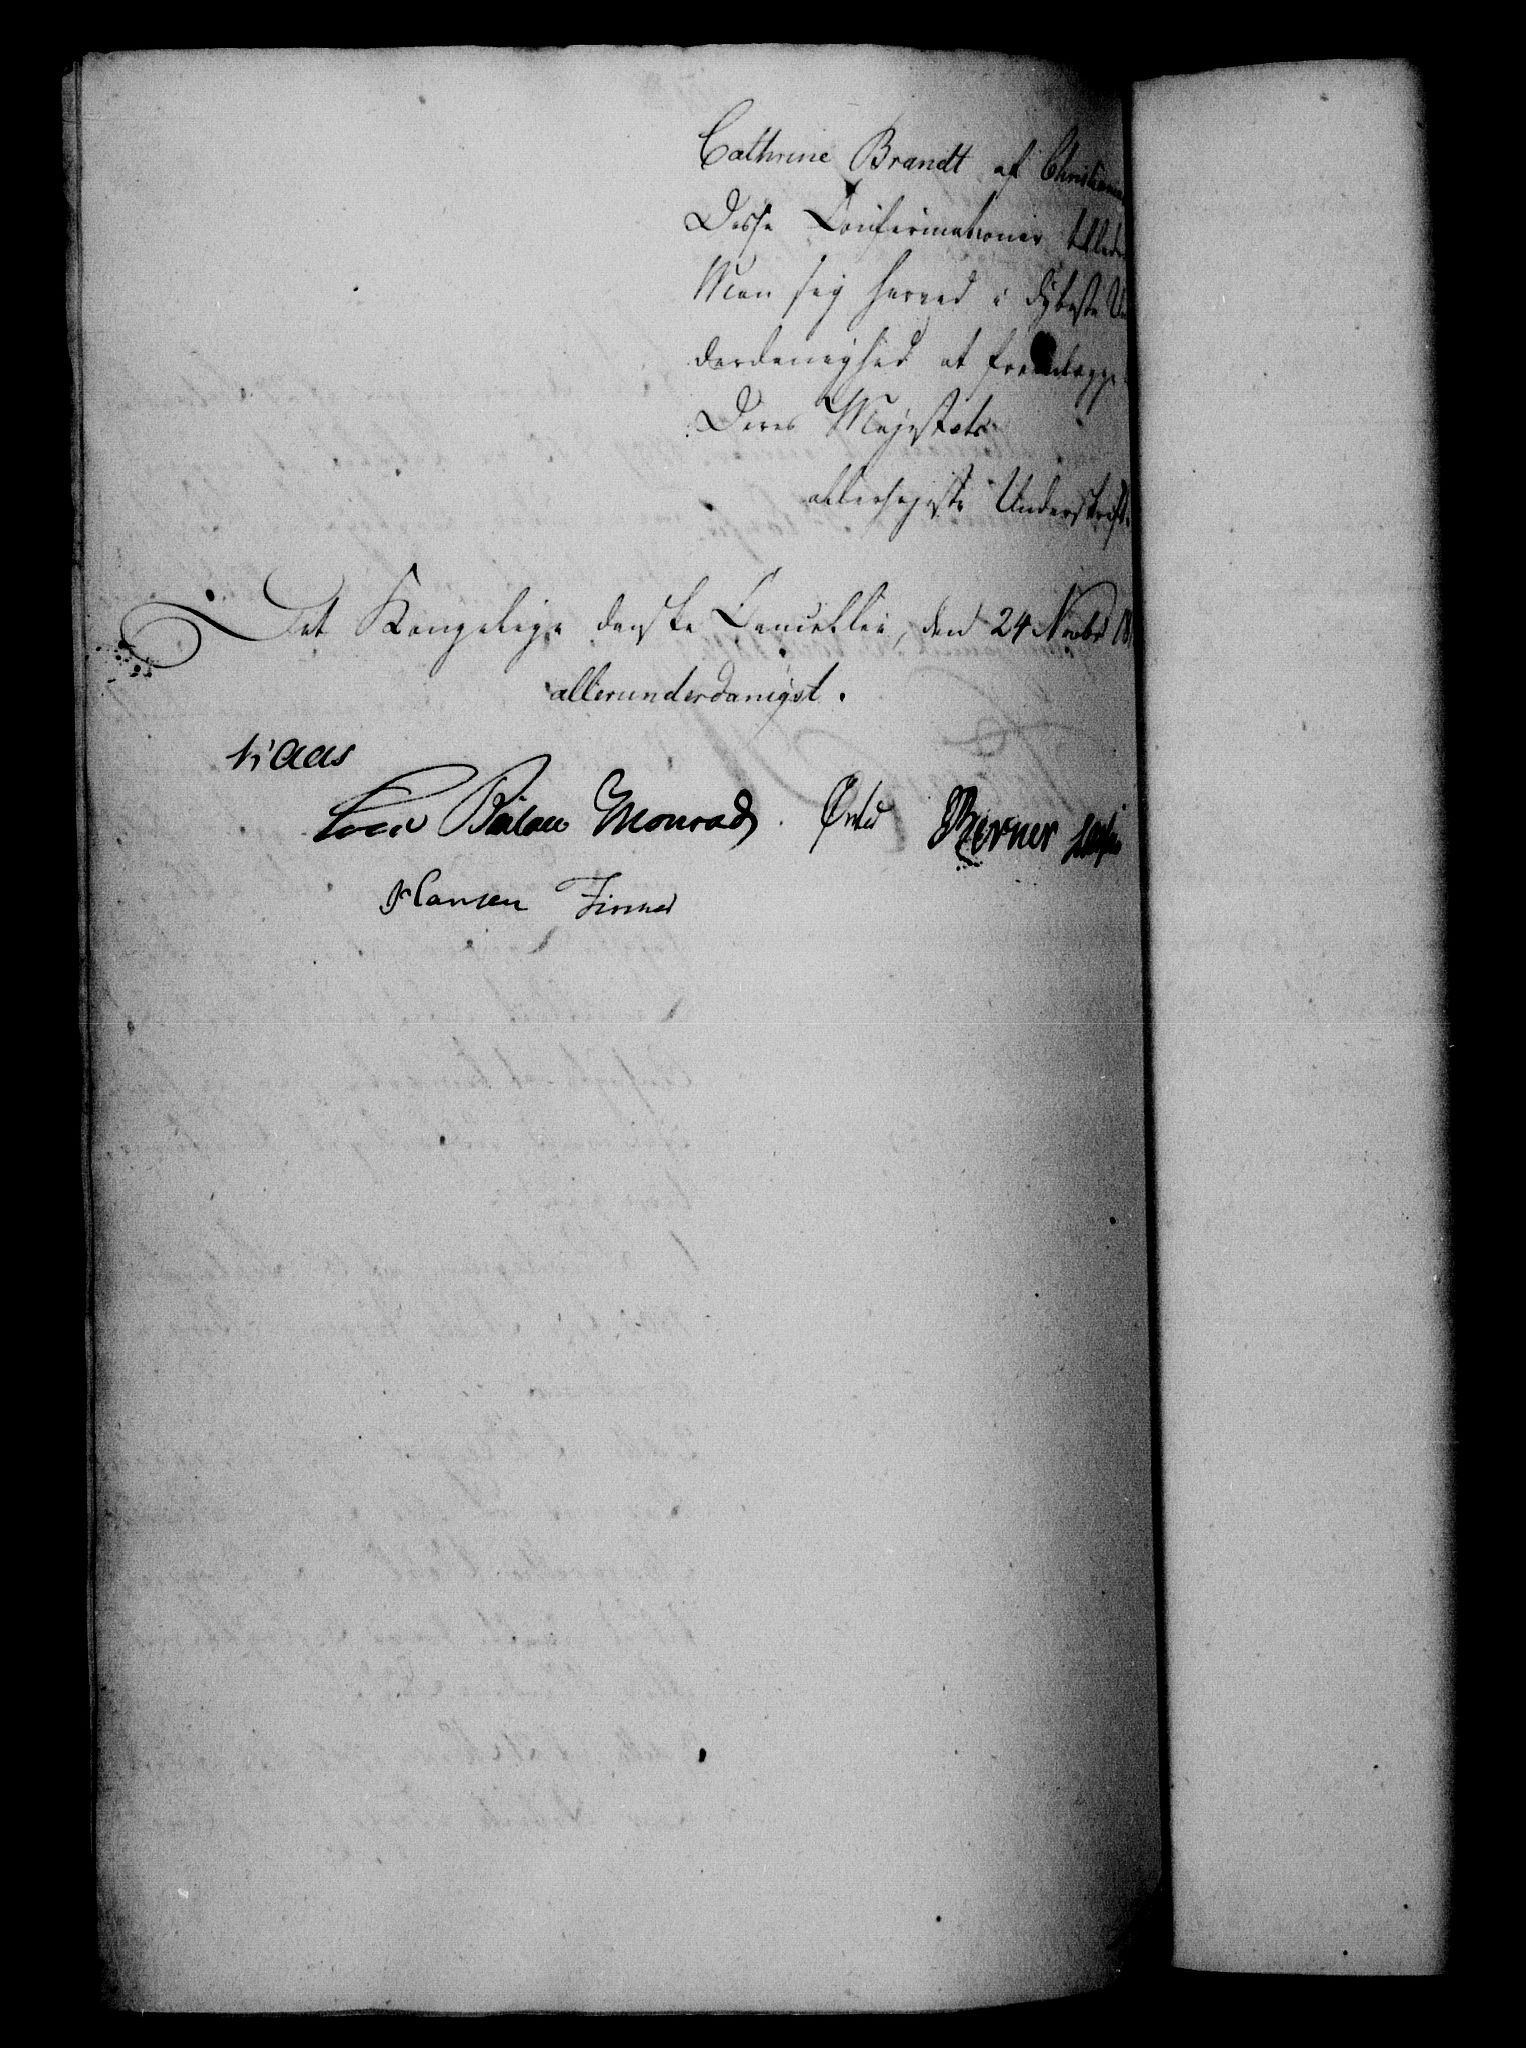 Cathrine Brandt af Christiania
Disse Confirmationer tillader
Man sig herved i dybeste Un
derdanighed at fremlægge
Deres Majestæts
allerhøjeste Underskrift.
Det Kongelige danske Cancellie, den 24 Novbr 18
allerunderdanigst.
Kaas
Bülow Monrad. Ørsted Berner
Hansen